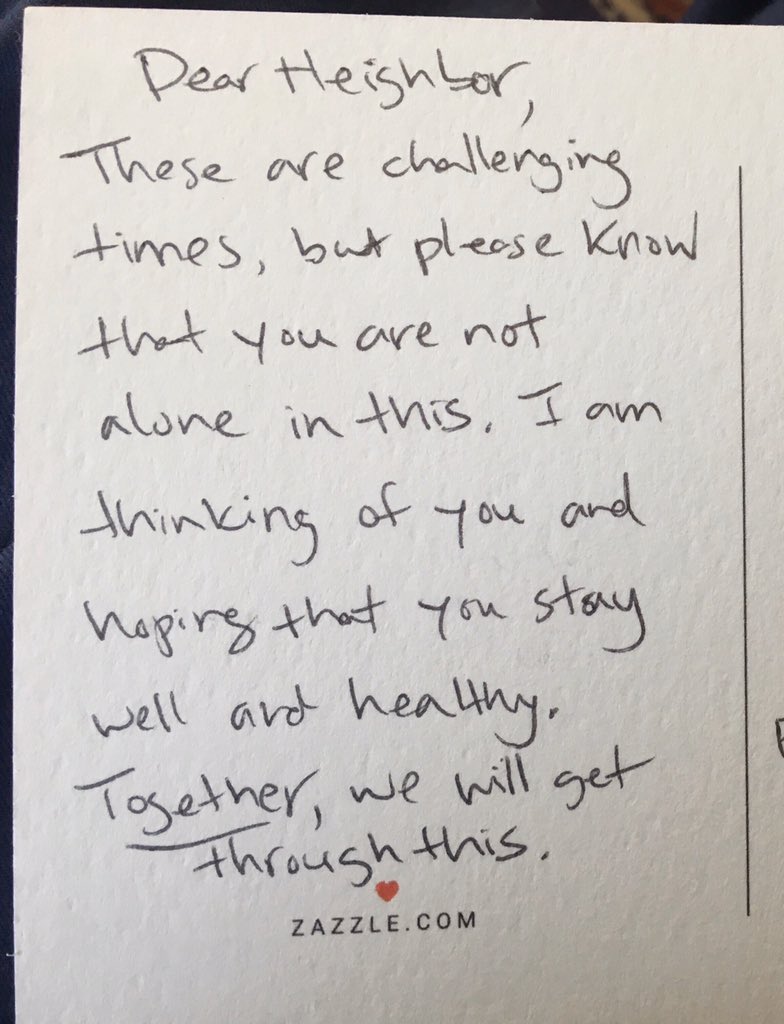 Dear Neighbor,
These are challenging
times, but please know
that you are not
alone in this. I am
thinking of you and
hoping that you stay
well and healthy.
Together, we will get
through this.
ZAZZLE.COM